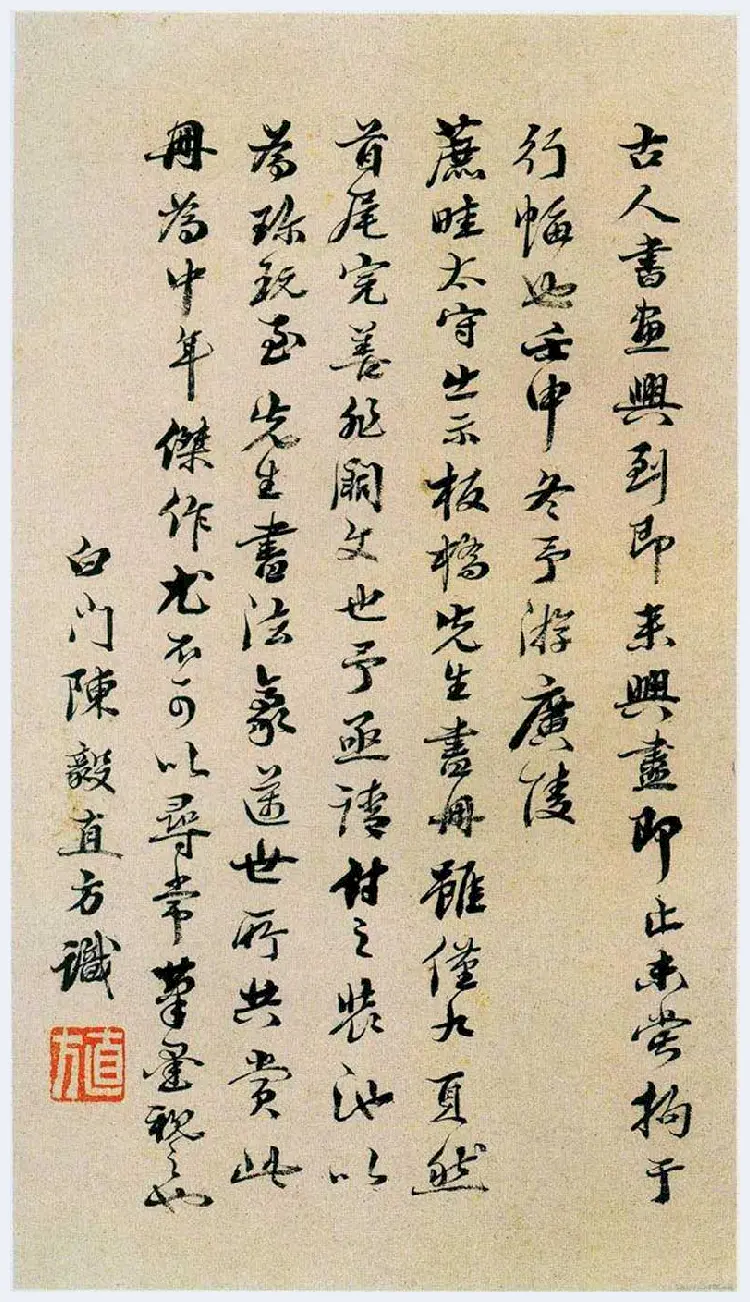 古人書画興到即来興盡即止未嘗拘于
行幅也壬申冬予游廣陵
蔗畦太守出示板橋先生畫冊雖僅九頁然
首尾完善非闕文也予亟請付之裝池以
為珍玩至先生書法豪邁世所共賞此
冊為中年傑作尤不可以尋常筆墨視之也
白门陳毅直方識
直方